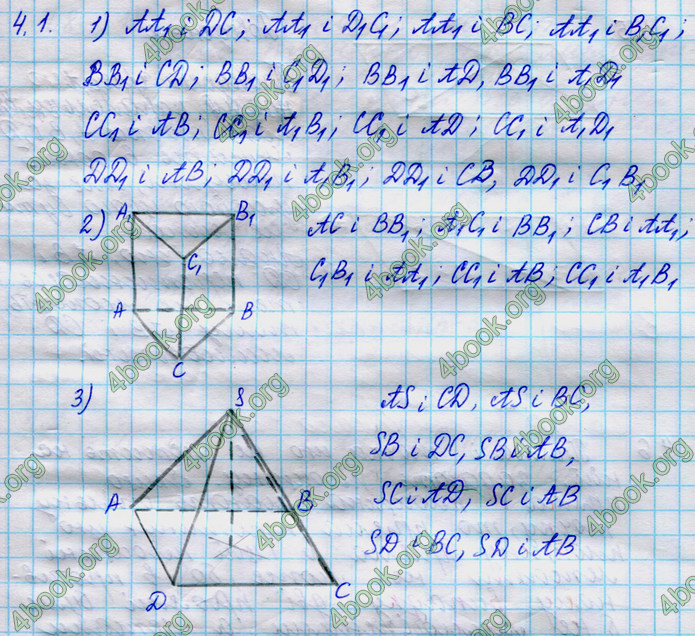 4.1. 1) AA₁ і DC; AA₁ і D₁C₁; AA₁ і BC; AA₁ і B₁C₁;
BB₁ і CD; BB₁ і C₁D₁; BB₁ і AD, BB₁ і A₁D₁
CC₁ і AB; CC₁ і A₁B₁; CC₁ і AD; CC₁ і A₁D₁
DD₁ і AB; DD₁ і A₁B₁; DD₁ і CB, DD₁ і C₁B₁
2) A₁ B₁ C₁ A B C
AC і BB₁; A₁C₁ і BB₁; CB і AA₁,
C₁B₁ і AA₁; CC₁ і AB; CC₁ і A₁B₁
3) S A B D C
AS і CD, AS і BC,
SB і DC, SB і AB,
SC і AD, SC і AB
SD і BC, SD і AB
4book.org